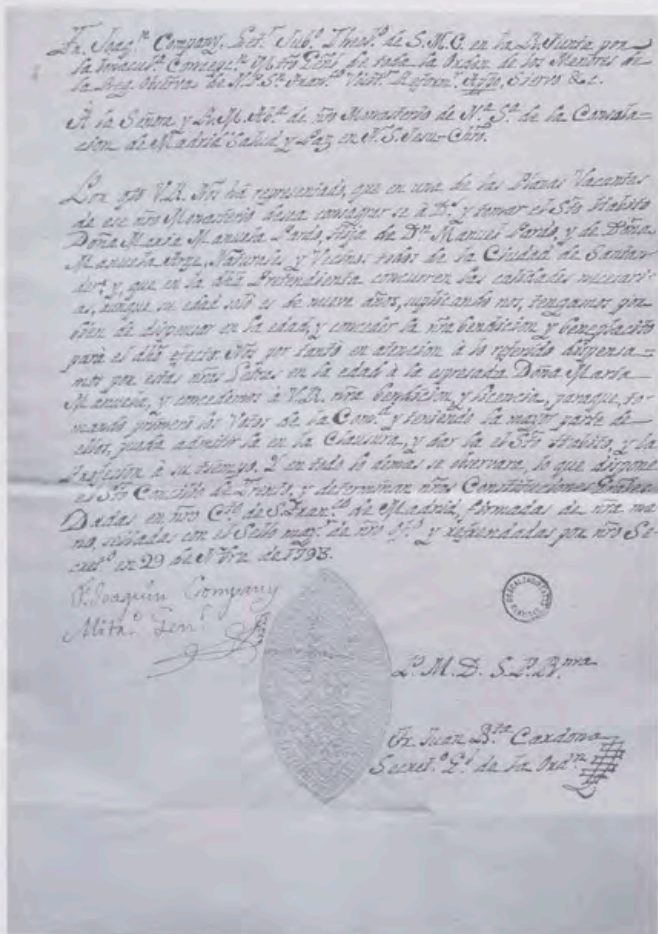 Fr. Joaqn. Company, Letr. Jubo. Theolo. de S.M.C. en la Rl. Junta por
la Inmaculta. Concepcn. Mtro. Genl. de toda la Orden de los Menores de
la Reg. Observa. de N. P. Sn. Franco. Visitr. Reformr. Appo. Siervo &c.
A la Señora y R. M. Aba. de nro Monasterio de Na. Sa. de la Consola=
cion de Madrid Salud y Paz en N. S. Jesu-Chto.
Por qto V.R. Nos há representado, que en una de las Plazas Vacantes
de ese nro Monasterio desea consagrarse à Ds. y tomar el Sto Habito
Doña Maria Manuela Pardo, Hija de Dn. Manuel Pardo, y de Doña
Manuela, Naturales y Vecinos todos de la Ciudad de Santan=
der: y, que en la dha Pretendienta concurren las calidades necesari=
as, aunque su edad solo es de nueve años, suplicando nos, tengamos por
bien de dispensar en la edad, y conceder la nra bendicion y beneplacito
para el dho efecto. Nos por tanto en atencion à lo referido dispensa=
mos por estas nras Letras en la edad à la expresada Doña Maria
Manuela, y concedemos à V.R. nra bendicion, y licencia, paraque, to=
mando primero los Votos de la Comd. y teniendo la mayor parte de
ellos, pueda admitirla en la Clausura, y darla el Sto Habito, y la
Profesion à su tiempo. Y en todo lo demas se observara, lo que dispone
el Sto Concilio de Trento, y determinan nras Constituciones
Dadas en nro Cto. de S. Franco. de Madrid, firmadas de nra ma=
no, selladas con el Sello mayr. de nro Ofo. y refrendadas por nro Se=
creto. en 29 de Nbre de 1793.
Fr. Joaquin Company
Mntro. Genl.
P. M. D. S. P. Rma.
Fr. Juan Bta. Cardona
Secreto. Gl. de la Ordn.